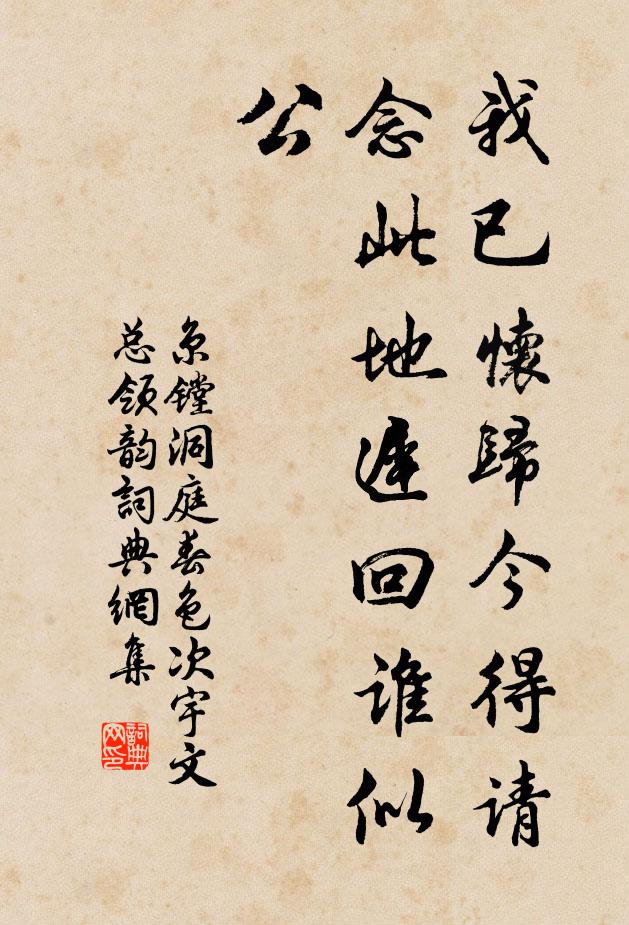 我已懷歸今得请
念此地遲回谁似
公
京镗洞庭春色次宇文
总领韵詞典網集
詞典网印